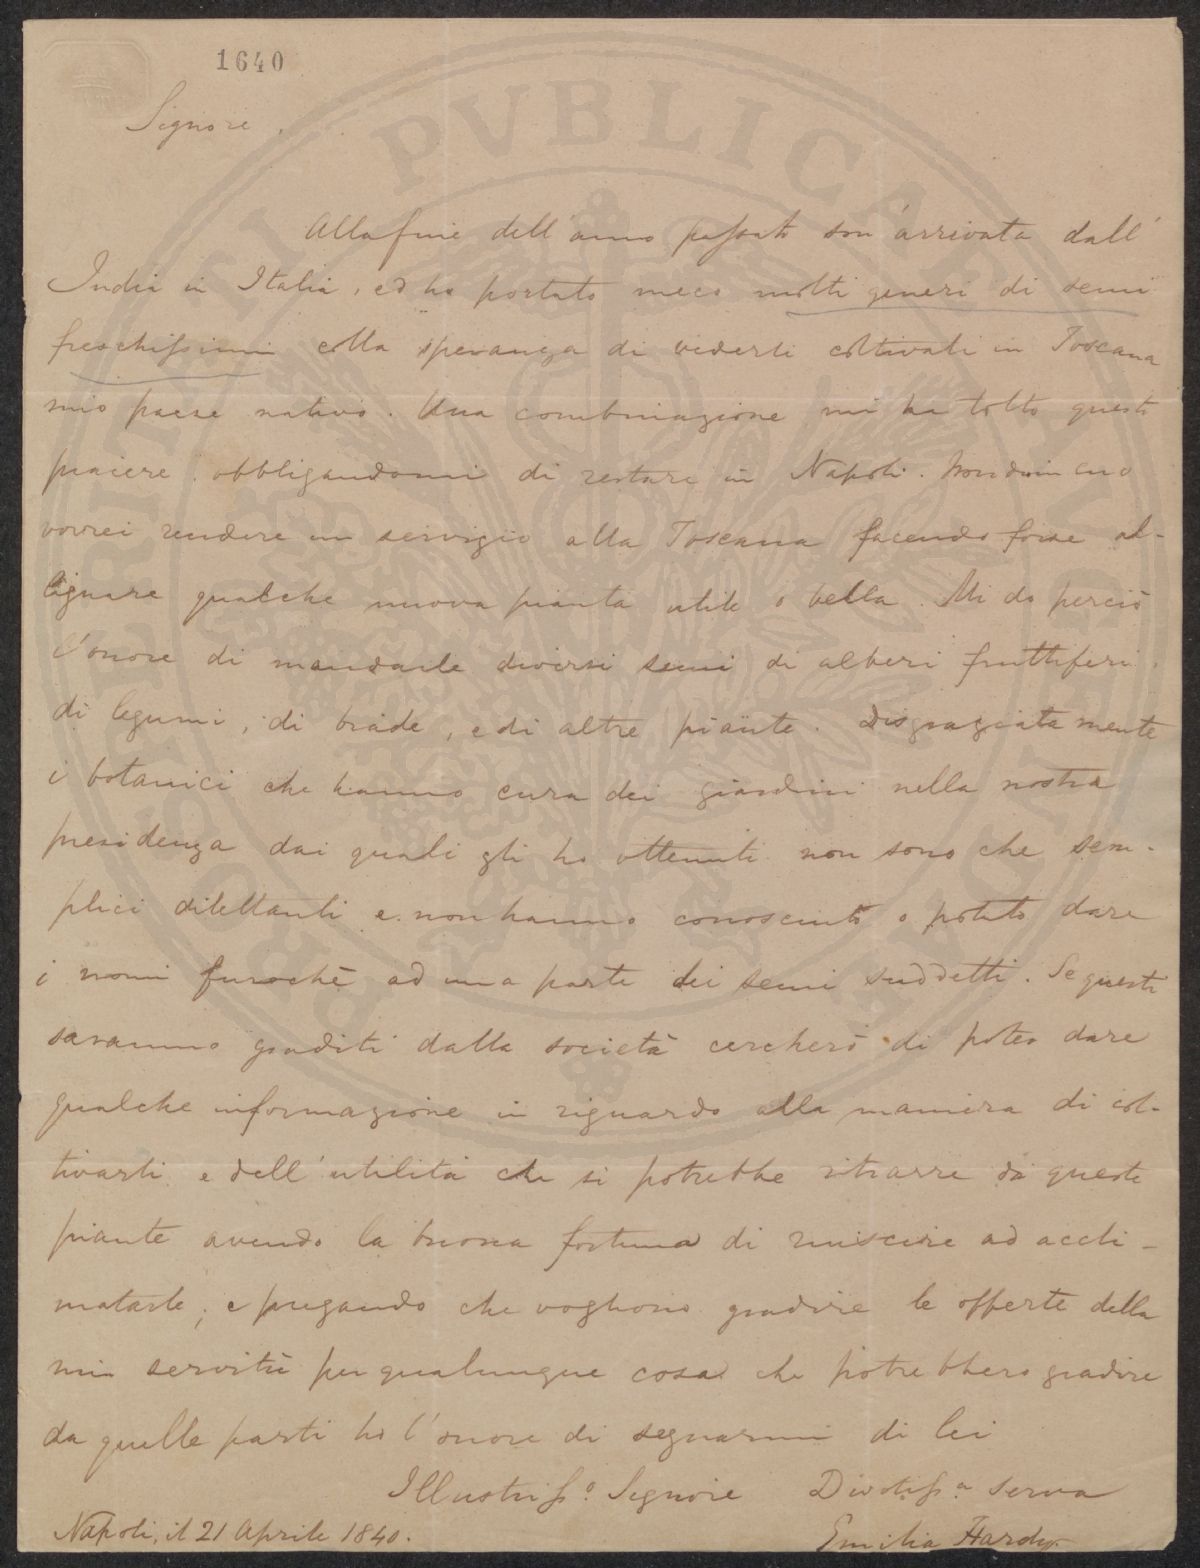 1640
Signore.
Alla fine dell'anno passato son'arrivata dall'
India in Italia, ed ho portato meco molti generi di semi
freschissimi colla speranza di vederli coltivati in Toscana
mio paese nativo. Una combinazione mi ha tolto questo
piacere obbligandomi di restare in Napoli. Nondimeno
vorrei rendere un servizio alla Toscana facendo forse al-
lignare qualche nuova pianta utile o bella. Mi do perciò
l'onore di mandarle diversi semi di alberi fruttiferi,
di legumi, di biade, e di altre piante. Disgraziatamente
i botanici che hanno cura dei giardini nella nostra
presidenza dai quali gli ho ottenuti non sono che sem-
plici dilettanti e non hanno conosciuto o potuto dare
i nomi fuorchè ad una parte dei semi suddetti. Se questi
saranno graditi dalla società cercherò di poter dare
qualche informazione in riguardo alla maniera di col-
tivarli e dell'utilità che si potrebbe ritrarre da queste
piante avendo la buona fortuna di riuscire ad accli-
matarle; e pregando che vogliono gradire le offerte della
mia servitù per qualunque cosa che potrebbero gradire
da quelle parti ho l'onore di segnarmi di lei
Illustriss.o Signore Divotiss.a serva
Napoli, il 21 Aprile 1840. Emilia Hardy
PROSPERITATI PVBLICAE AVGENDAE